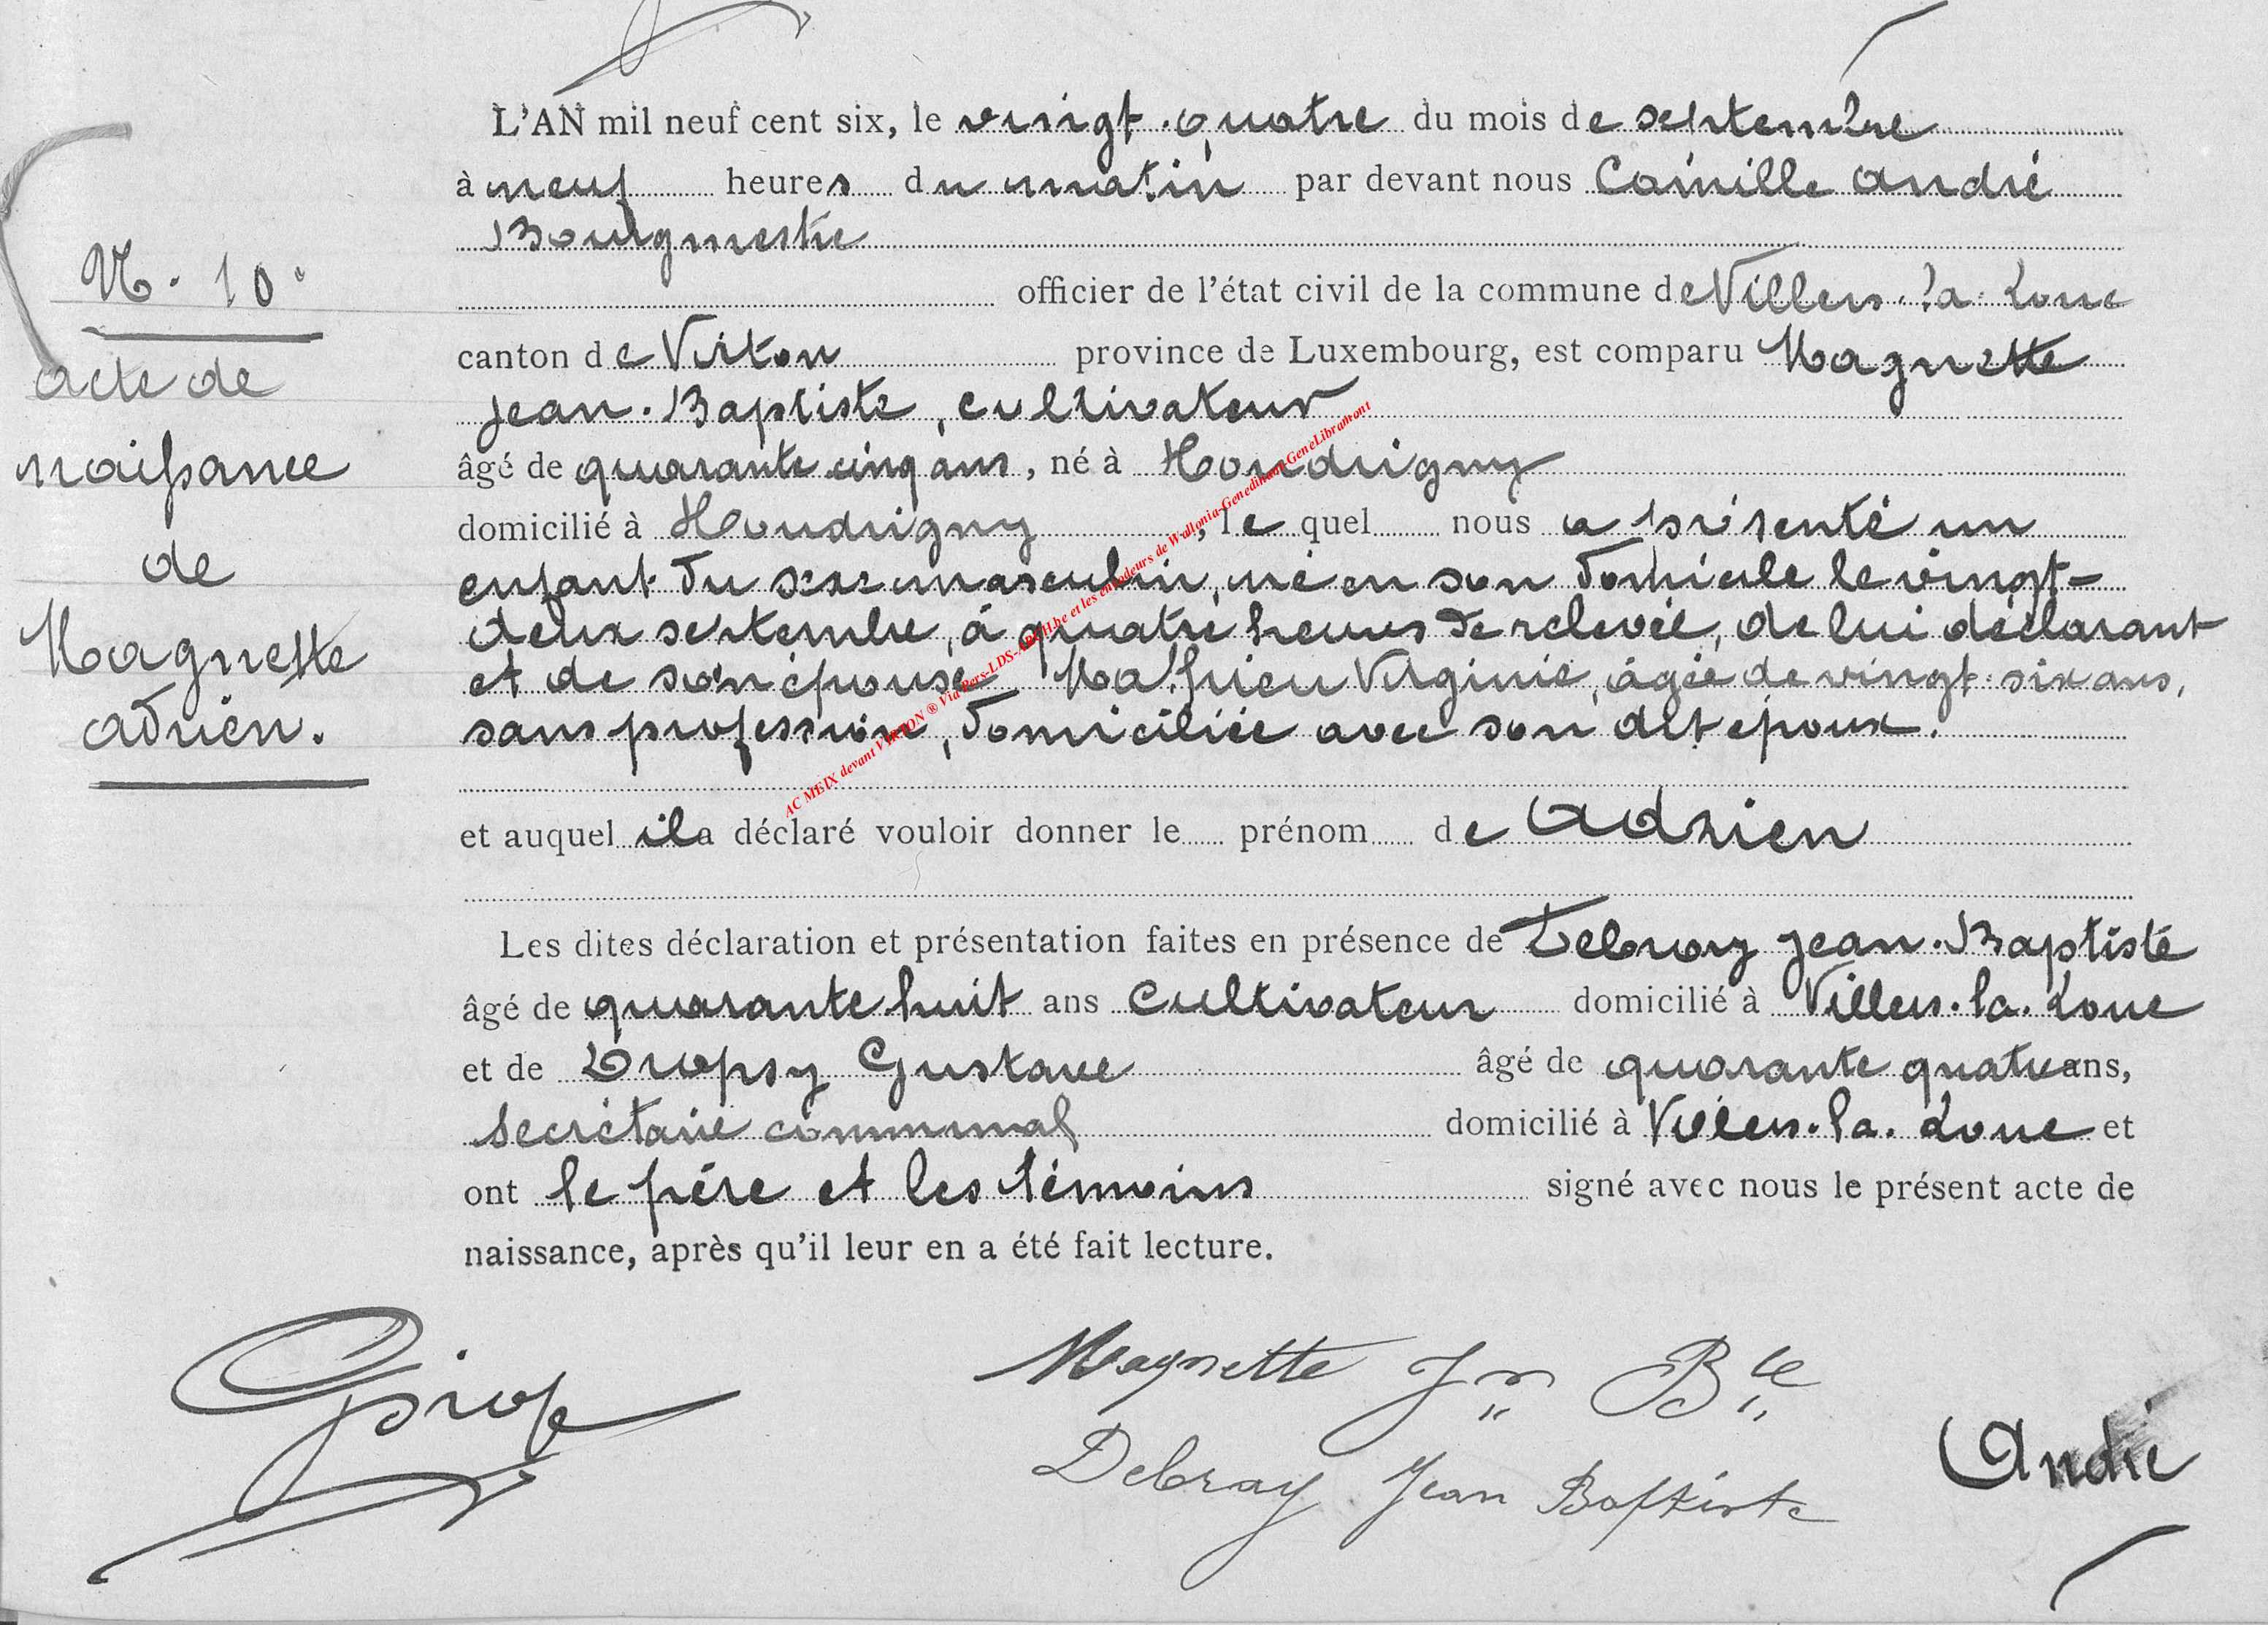 L'AN mil neuf cent six, le vingt-quatre du mois de septembre
à neuf heures du matin par devant nous Camille André
Bourgmestre
officier de l'état civil de la commune de Villers-la-Loue
N. 10.
canton de Virton province de Luxembourg, est comparu Magnette
acte de
Jean-Baptiste, cultivateur
naissance
âgé de quarante cinq ans, né à Houdrigny
domicilié à Houdrigny, lequel nous a présenté un
de
enfant du sexe masculin, né en son domicile le vingt-
deux septembre, à quatre heures de relevée, de lui déclarant
Magnette
et de son épouse Mathieu Virginie, âgée de vingt-six ans,
Adrien.
sans profession, domiciliée avec son dit époux.
AC MEIX devant VIRTON ® Via Pers-LDS-ARCH.be et les encodeurs de Wallonia-Genedinant-GeneLibramont
et auquel il a déclaré vouloir donner le prénom de Adrien
Les dites déclaration et présentation faites en présence de Debray Jean-Baptiste
âgé de quarante huit ans cultivateur domicilié à Villers-la-Loue
et de Dropsy Gustave âgé de quarante quatre ans,
secrétaire communal domicilié à Villers-la-Loue et
ont le père et les témoins signé avec nous le présent acte de
naissance, après qu'il leur en a été fait lecture.
Magnette Jn Bte
Debray Jean Baptiste
André